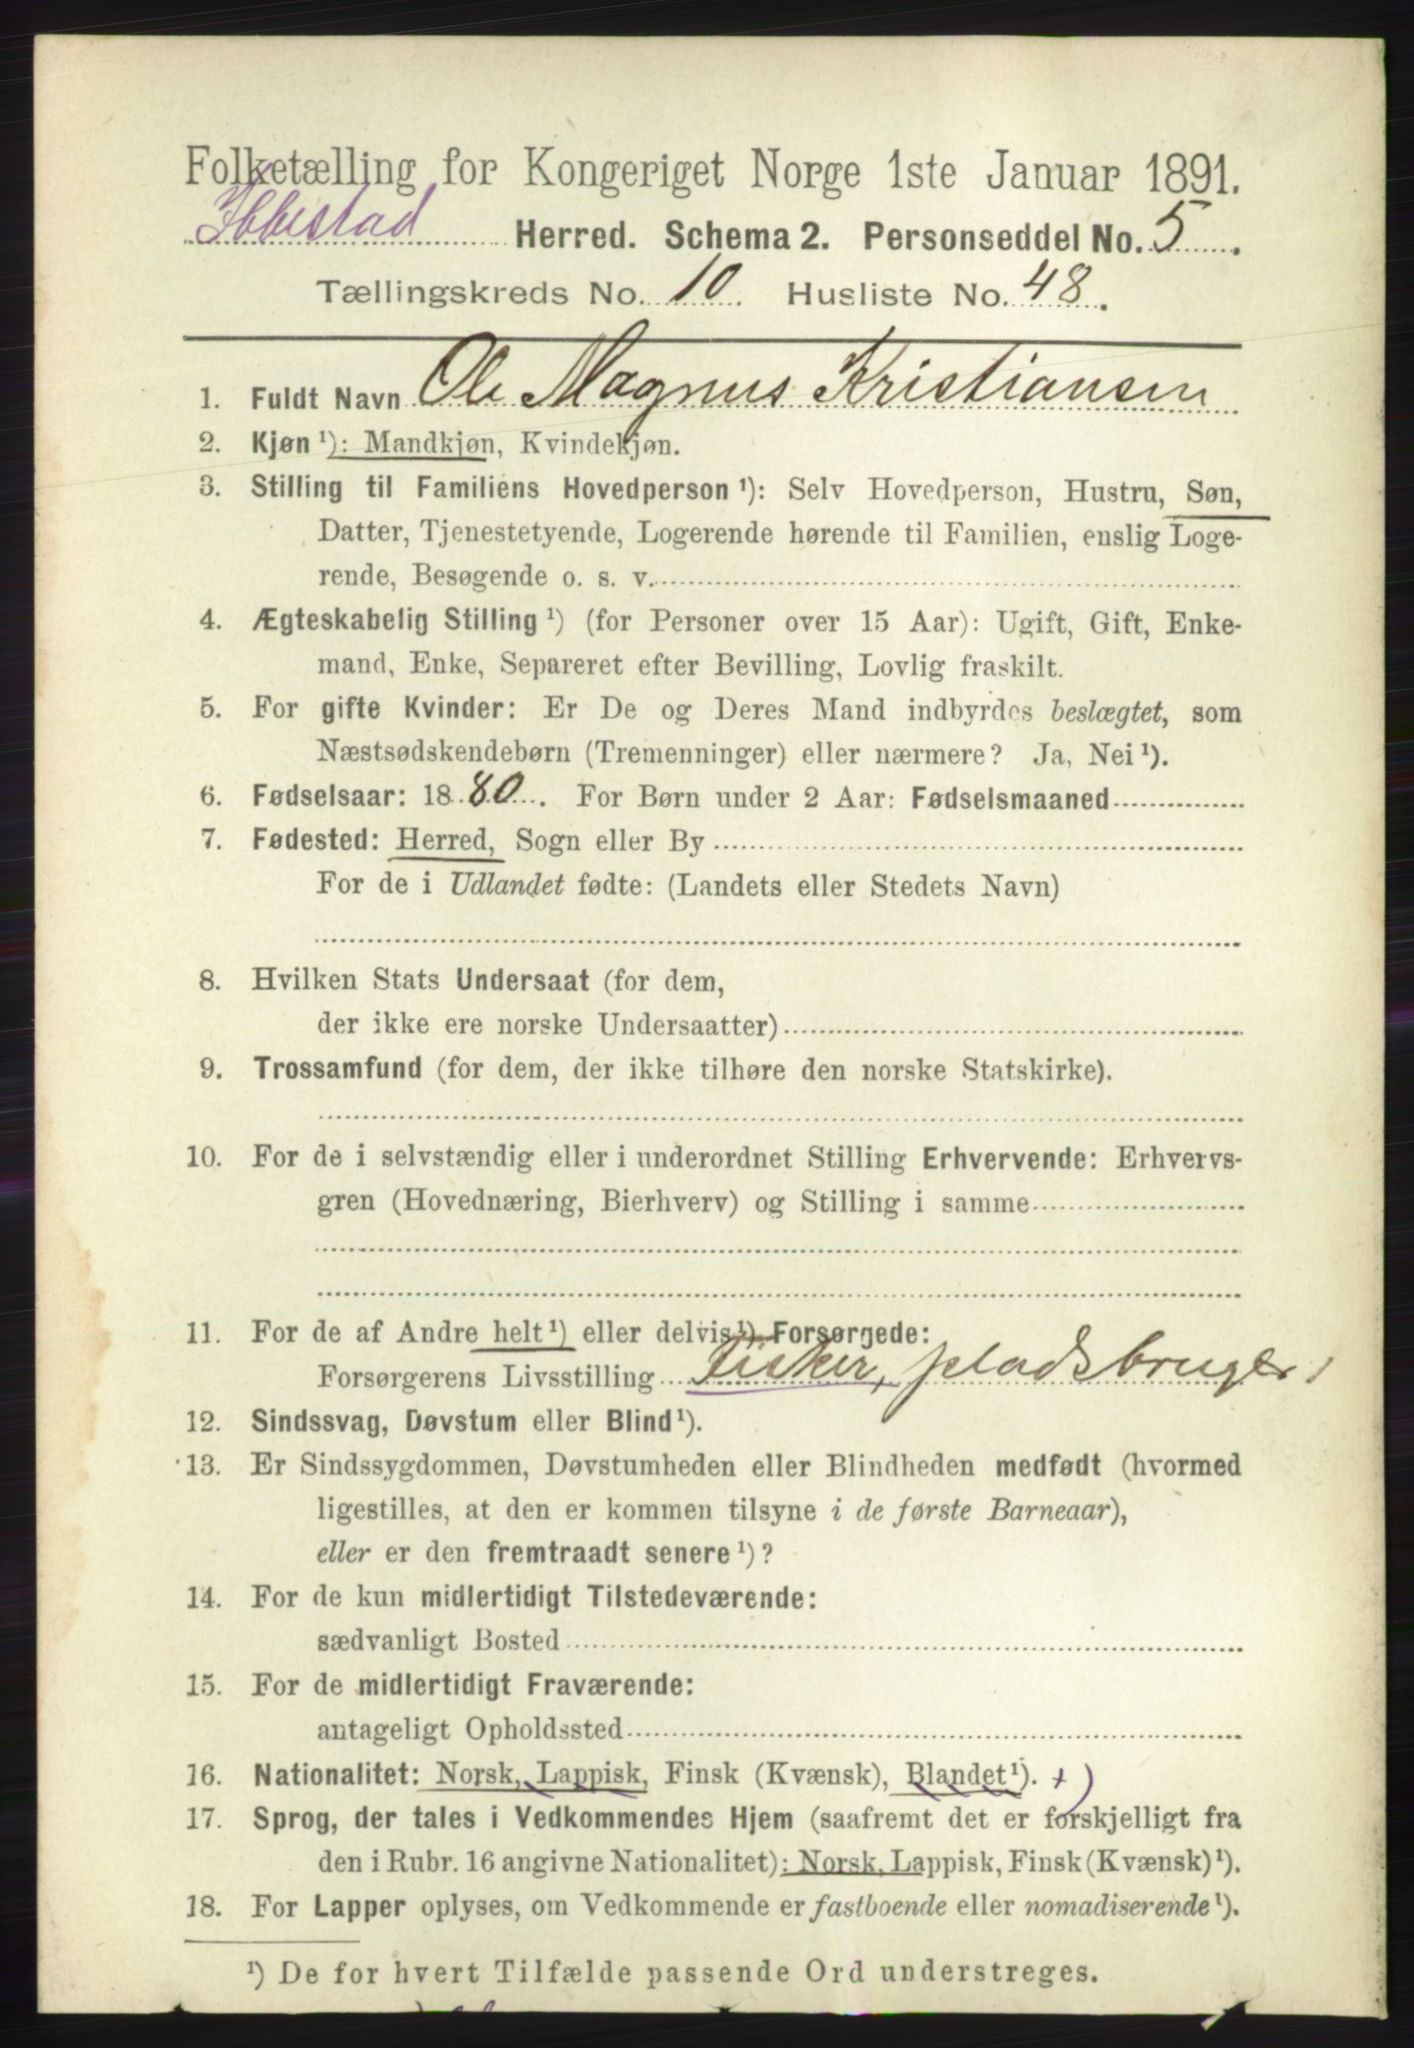 Folketælling for Kongeriget Norge 1ste Januar 1891.
Ibbestad Herred. Schema 2. Personseddel No. 5.
Tællingskreds No. 10. Husliste No. 48.
1. Fuldt Navn Ole Magnus Kristiansen
2. Kjøn ¹): Mandkjøn, Kvindekjøn.
3. Stilling til Familiens Hovedperson ¹): Selv Hovedperson, Hustru, Søn,
Datter, Tjenestetyende, Logerende hørende til Familien, enslig Loge-
rende, Besøgende o. s. v.
4. Ægteskabelig Stilling ¹) (for Personer over 15 Aar): Ugift, Gift, Enke-
mand, Enke, Separeret efter Bevilling, Lovlig fraskilt.
5. For gifte Kvinder: Er De og Deres Mand indbyrdes beslægtet, som
Næstsødskendebørn (Tremenninger) eller nærmere? Ja, Nei ¹).
6. Fødselsaar: 1880. For Børn under 2 Aar: Fødselsmaaned
7. Fødested: Herred, Sogn eller By
For de i Udlandet fødte: (Landets eller Stedets Navn)
8. Hvilken Stats Undersaat (for dem,
der ikke ere norske Undersaatter)
9. Trossamfund (for dem, der ikke tilhøre den norske Statskirke).
10. For de i selvstændig eller i underordnet Stilling Erhvervende: Erhvervs-
gren (Hovednæring, Bierhverv) og Stilling i samme
11. For de af Andre helt ¹) eller delvis ¹) Forsørgede:
Forsørgerens Livsstilling Fisker, pladsbruger
12. Sindssvag, Døvstum eller Blind ¹).
13. Er Sindssygdommen, Døvstumheden eller Blindheden medfødt (hvormed
ligestilles, at den er kommen tilsyne i de første Barneaar),
eller er den fremtraadt senere ¹)?
14. For de kun midlertidigt Tilstedeværende:
sædvanligt Bosted
15. For de midlertidigt Fraværende:
antageligt Opholdssted
16. Nationalitet: Norsk, Lappisk, Finsk (Kvænsk), Blandet ¹). +)
17. Sprog, der tales i Vedkommendes Hjem (saafremt det er forskjelligt fra
den i Rubr. 16 angivne Nationalitet): Norsk, Lappisk, Finsk (Kvænsk) ¹).
18. For Lapper oplyses, om Vedkommende er fastboende eller nomadiserende ¹).
¹) De for hvert Tilfælde passende Ord understreges.